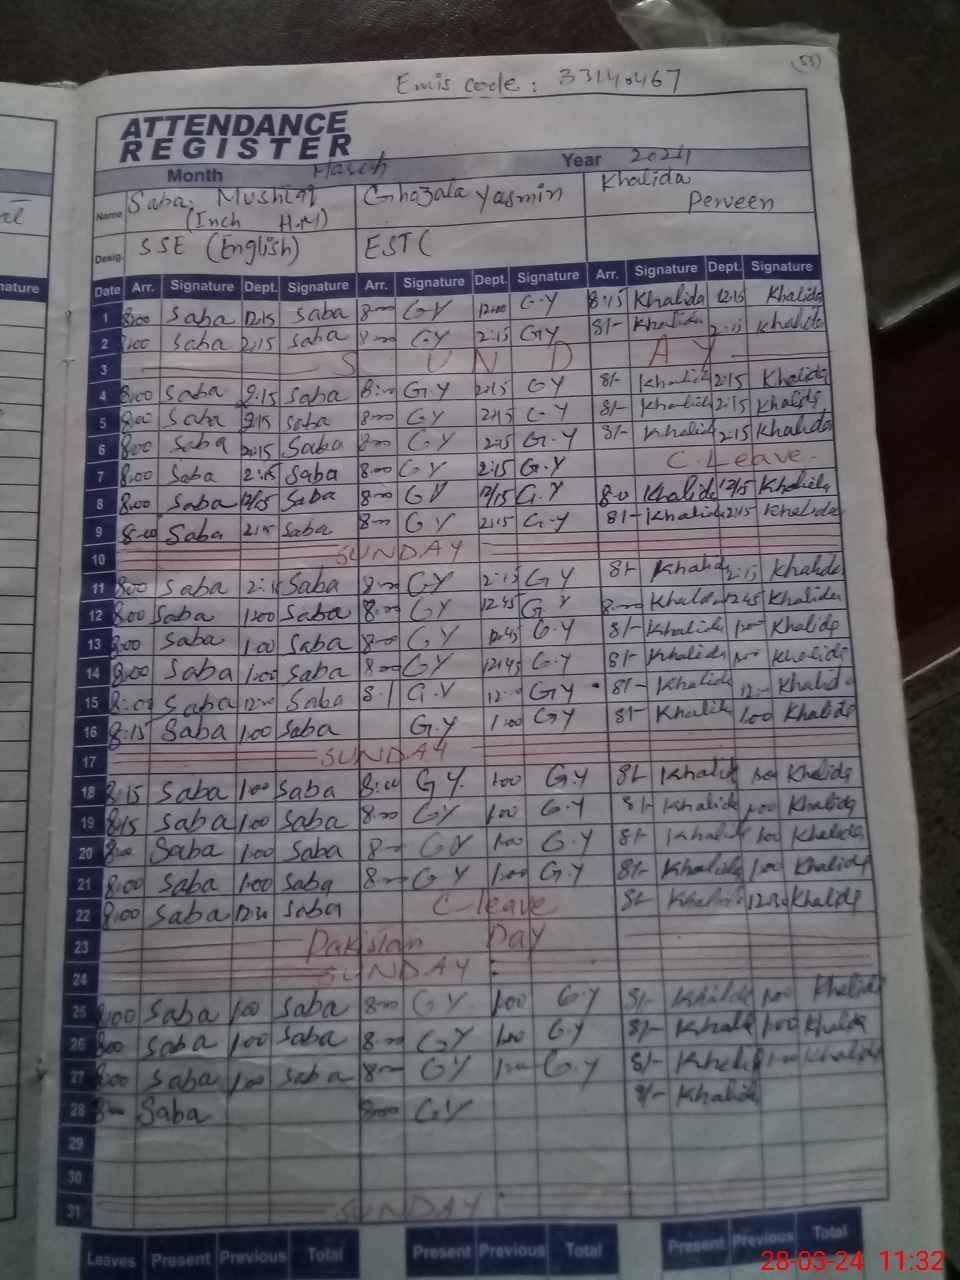 (53)
Emis code: 33140467
ATTENDANCE
REGISTER
Month March Year 2024
Name Saba Mushtaq (Inch H.M) Ghazala Yasmin Khalida Perveen
Desig. SSE (English) EST(
Date Arr. Signature Dept. Signature Arr. Signature Dept. Signature Arr. Signature Dept. Signature
1 8:00 Saba 12:15 Saba 8:00 GY 12:00 G.Y 8:15 Khalida 12:15 Khalida
2 8:00 Saba 2:15 Saba 8:00 GY 2:15 GY 8/- Khalida 2:15 Khalida
3 S U N D A Y
4 8:00 Saba 2:15 Saba 8:00 G.Y 2:15 GY 8/- Khalida 2:15 Khalida
5 8:00 Saba 2:15 Saba 8:00 GY 2:15 GY 8/- Khalida 2:15 Khalida
6 8:00 Saba 2:15 Saba 8:00 GY 2:15 G.Y 8/- Khalida 2:15 Khalida
7 8:00 Saba 2:15 Saba 8:00 GY 2:15 G.Y C.Leave.
8 8:00 Saba 12/15 Saba 8:00 GY 12/15 G.Y 8:0 Khalida 12/15 Khalida
9 8:00 Saba 2:15 Saba 8:00 GY 2:15 G.Y 8/- Khalida 2:15 Khalida
10 SUNDAY
11 8:00 Saba 2:15 Saba 8:00 GY 2:15 GY 8/- Khalida 2:15 Khalida
12 8:00 Saba 1:00 Saba 8:00 GY 12:45 G.Y 8:00 Khalida 12:45 Khalida
13 8:00 Saba 1:00 Saba 8:00 GY 12:45 G.Y 8/- Khalida 1:00 Khalida
14 8:00 Saba 1:00 Saba 8:00 GY 12:45 G.Y 8/- Khalida 1:00 Khalida
15 8:00 Saba 12:00 Saba 8:/ G.Y 12:00 GY 8/- Khalida 12:- Khalida
16 8:15 Saba 1:00 Saba G.Y 1:00 GY 8/- Khalida 1:00 Khalida
17 SUNDAY
18 8:15 Saba 1:00 Saba 8:00 GY. 1:00 G.Y 8/- Khalida 1:00 Khalida
19 8:15 Saba 1:00 Saba 8:00 GY 1:00 G.Y 8/- Khalida 1:00 Khalida
20 8:00 Saba 1:00 Saba 8:00 GY 1:00 G.Y 8/- Khalida 1:00 Khalida
21 8:00 Saba 1:00 Saba 8:00 GY 1:00 G.Y 8/- Khalida 1:00 Khalida
22 8:00 Saba 12:30 Saba C-leave 8/- Khalida 12:30 Khalida
23 Pakistan Day
24 SUNDAY
25 8:00 Saba 1:00 Saba 8:00 GY 1:00 G.Y 8/- Khalida 1:00 Khalida
26 8:00 Saba 1:00 Saba 8:00 GY 1:00 G.Y 8/- Khalida 1:00 Khalida
27 8:00 Saba 1:00 Saba 8:00 GY 1:00 G.Y 8/- Khalida 1:00 Khalida
28 8:00 Saba 8:00 GY 8/- Khalida
29
30
31 SUNDAY
Leaves Present Previous Total Present Previous Total Present Previous Total
28-03-24 11:32